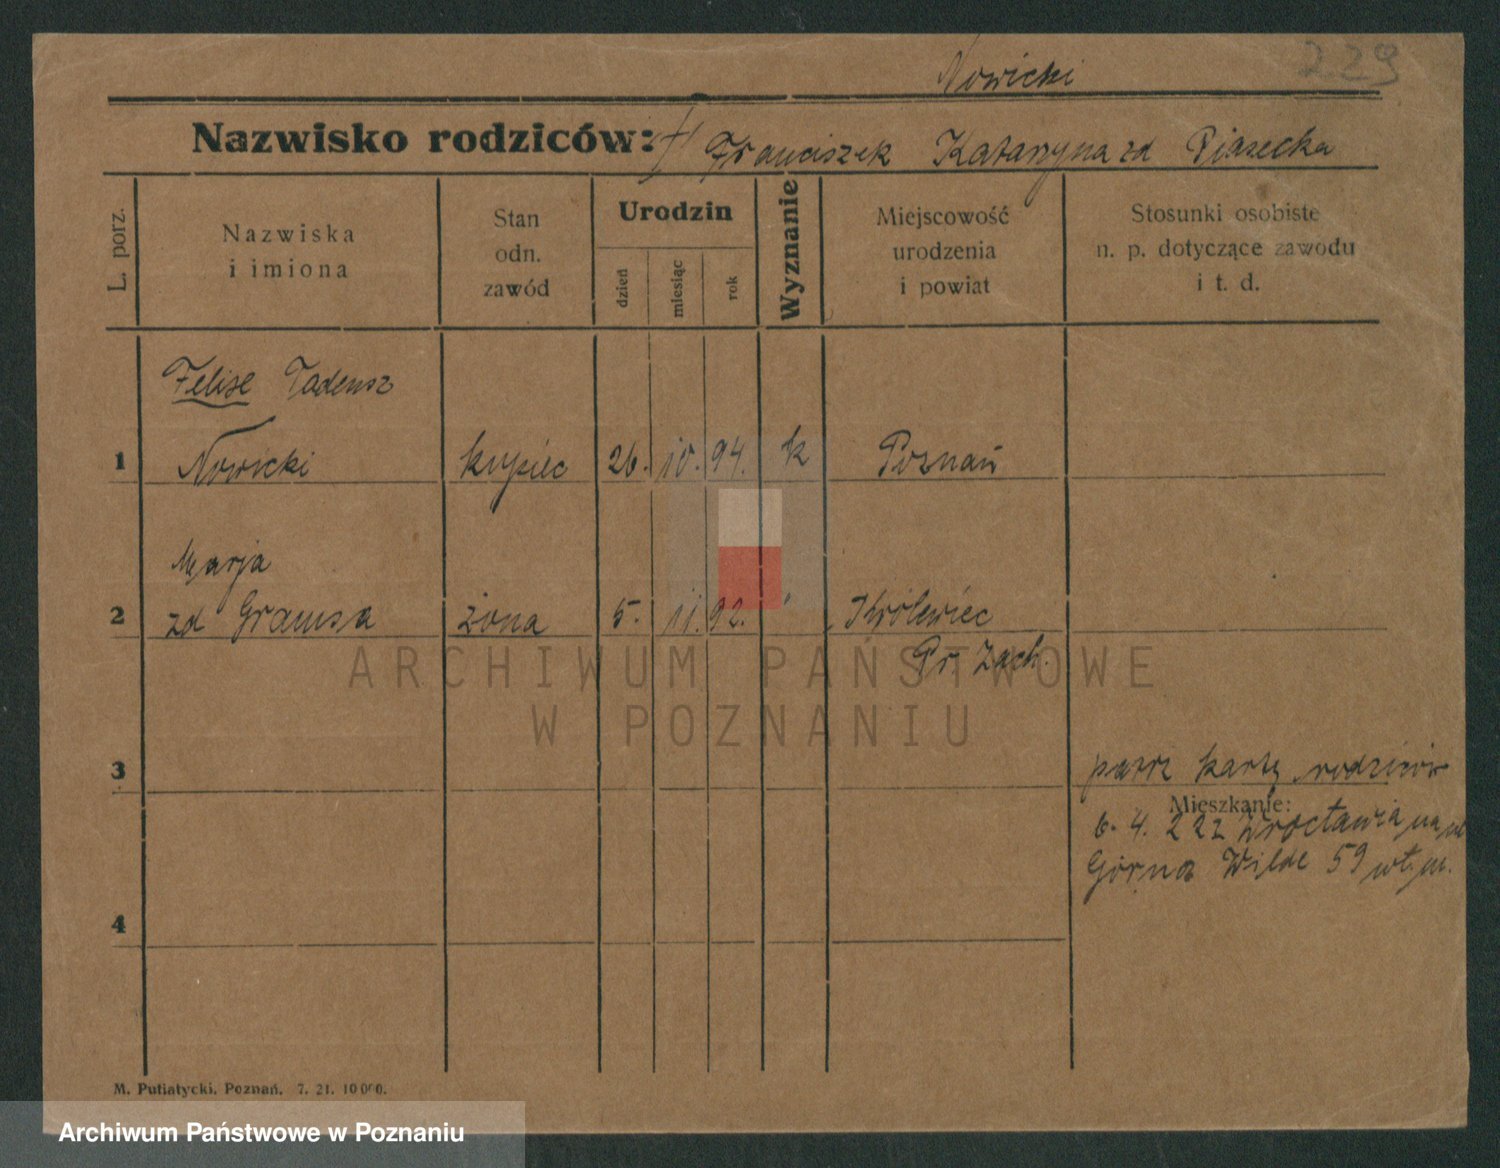 229
Nowicki
Nazwisko rodziców: Franciszek Katarzyna zd Piasecka
L. porz.
Nazwiska
i imiona
Stan
odn.
zawód
Urodzin
dzień
miesiąc
rok
Wyznanie
Miejscowość
urodzenia
i powiat
Stosunki osobiste
n. p. dotyczące zawodu
i t. d.
Felise Tadeusz
1 Nowicki kupiec 26. 10. 94. k Poznań
Marja
2 zd Gramsa żona 5. 11. 92. " Królewiec
Pr. Zach.
ARCHIWUM PAŃSTWOWE
W POZNANIU
3 patrz kartę rodziców
Mieszkanie:
6. 4. 22 z Wrocławia na ul
Górna Wilde 59 wł. m.
4
M. Putiatycki, Poznań. 7. 21. 10000.
Archiwum Państwowe w Poznaniu